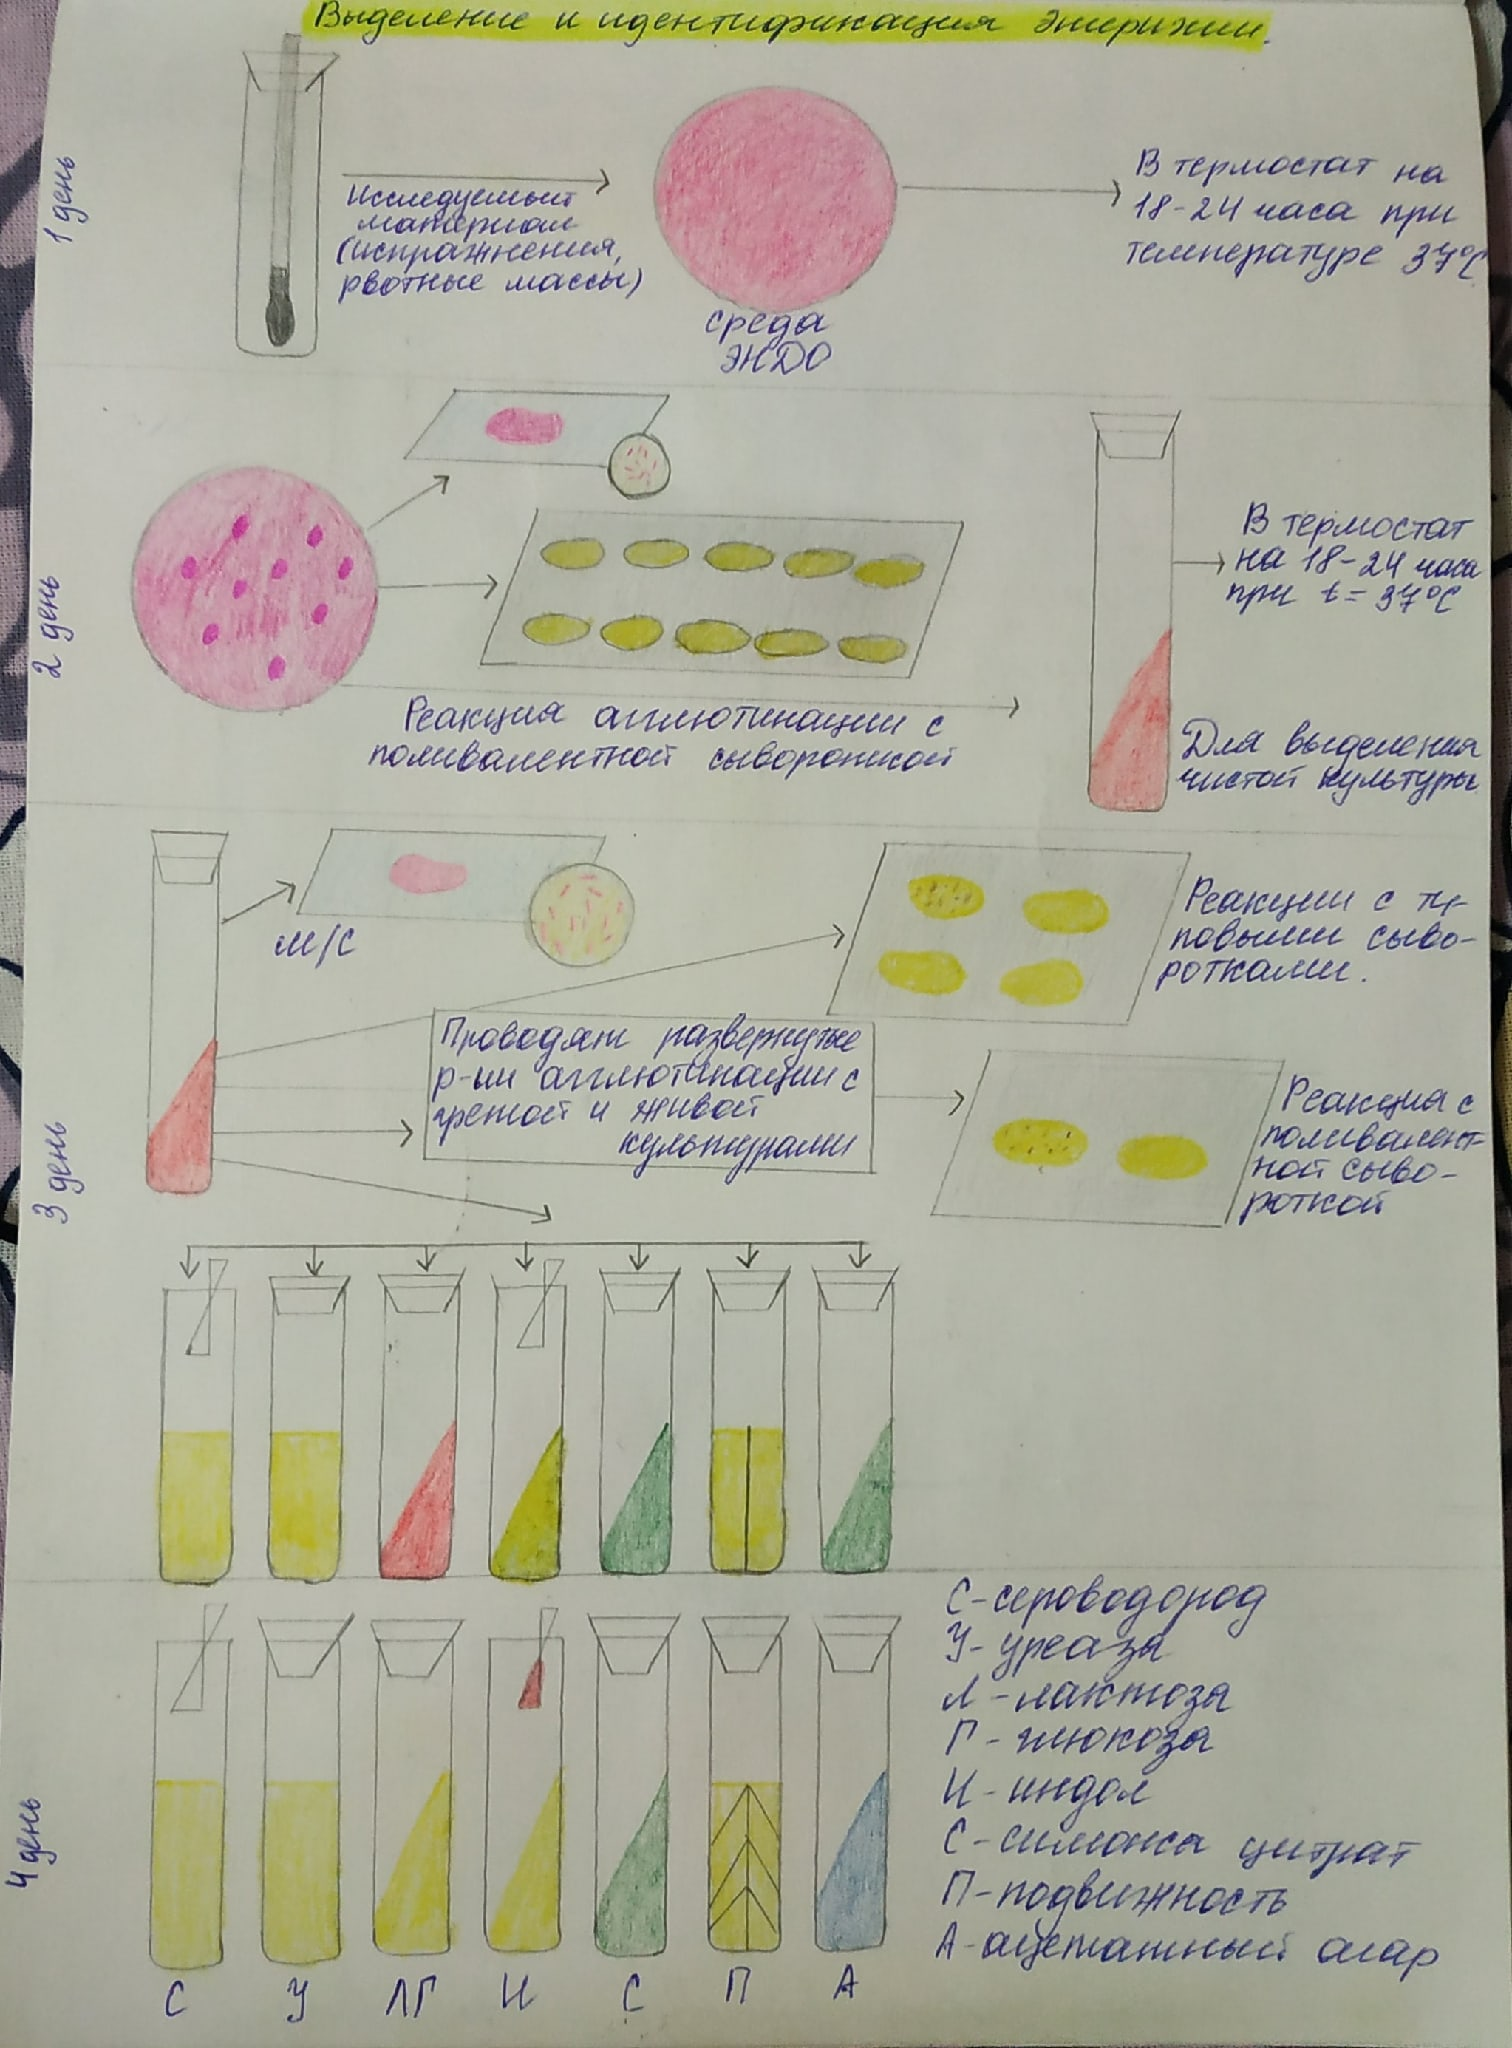 Выделение и идентификация Эшерихии.
1 день
Исследуемый
материал
(испражнения,
рвотные массы)
среда
ЭНДО
В термостат на
18-24 часа при
температуре 37°C
2 день
Реакция агглютинации с
поливалентной сывороткой
В термостат
на 18-24 часа
при t = 37°C
Для выделения
чистой культуры
3 день
М/С
Реакции с ти-
повыми сыво-
ротками.
Проводят развернутые
р-ии агглютинации с
гретой и живой
культурами
Реакция с
поливалент-
ной сыво-
роткой
4 день
С У ЛГ И С П А
С-сероводород
У-уреаза
Л-лактоза
Г-глюкоза
И-индол
С-симонса цитрат
П-подвижность
А-ацетатный агар